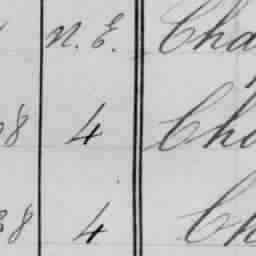 N. E. Cha
8 4 Cha
8 4 Ch